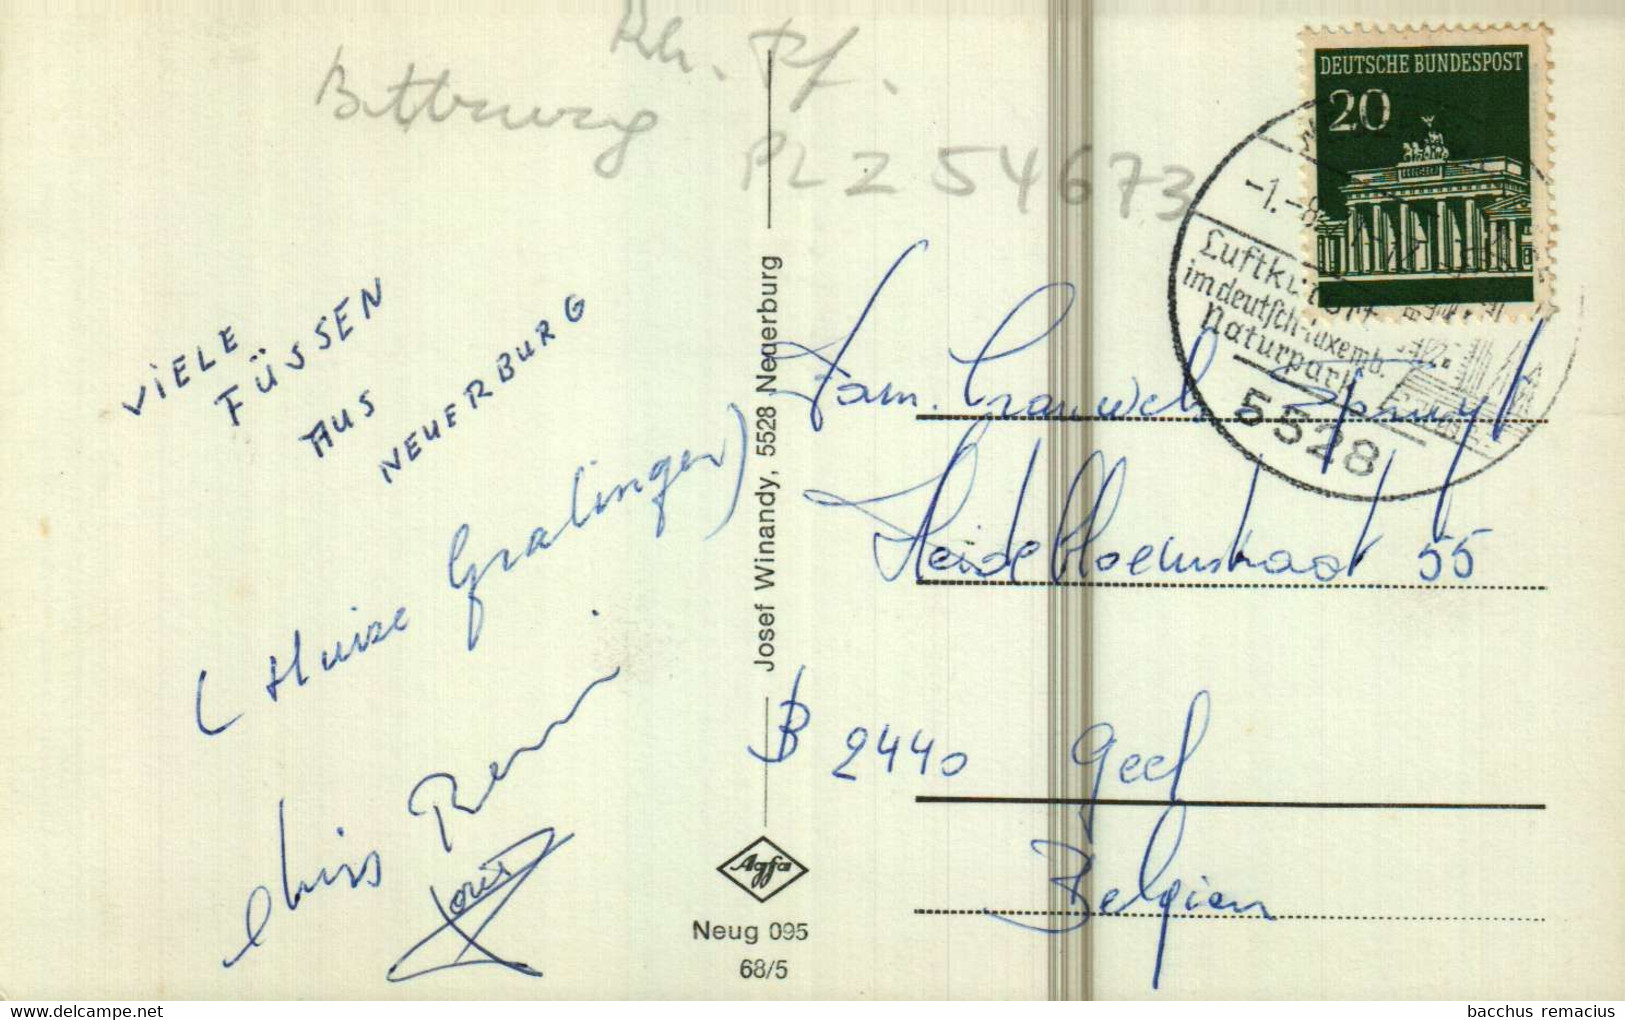 Rh. Pf.
Bitburg
PLZ 54673
DEUTSCHE BUNDESPOST
20
-1.-8
Luftkurort
im deutsch-luxemb.
Naturpark
5528
VIELE
FÜSSEN
AUS
NEUERBURG
(Huize Gralinger)
Chris
Josef Winandy, 5528 Neuerburg
Fam.
Heidebloemstraat 55
B 2440 Geel
Belgien
Agfa
Neug 095
68/5
bacchus remacius